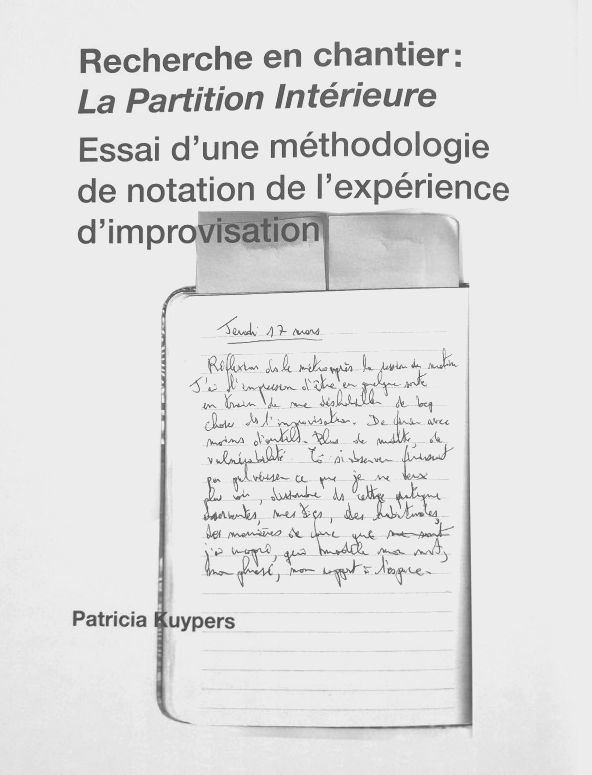 Recherche en chantier :
La Partition Intérieure
Essai d'une méthodologie
de notation de l'expérience
d'improvisation
Jeudi 17 mars
Réflexion ds le métro après la session du matin
J'ai l'impression d'être en quelque sorte
en train de me déshabiller de bcp
choses ds l'improvisation. De faire avec
moins d'outils. Plus de de
vulnérabilité. Et si observer finissait
par pulvériser ce que je ne veux
plus voir, dissoudre ds cette pratique
mes tics, des habitudes,
des manières de faire que me sont
j'ai qui modèle mon mvt,
mon phrasé, mon rapport à l'espace.
Patricia Kuypers